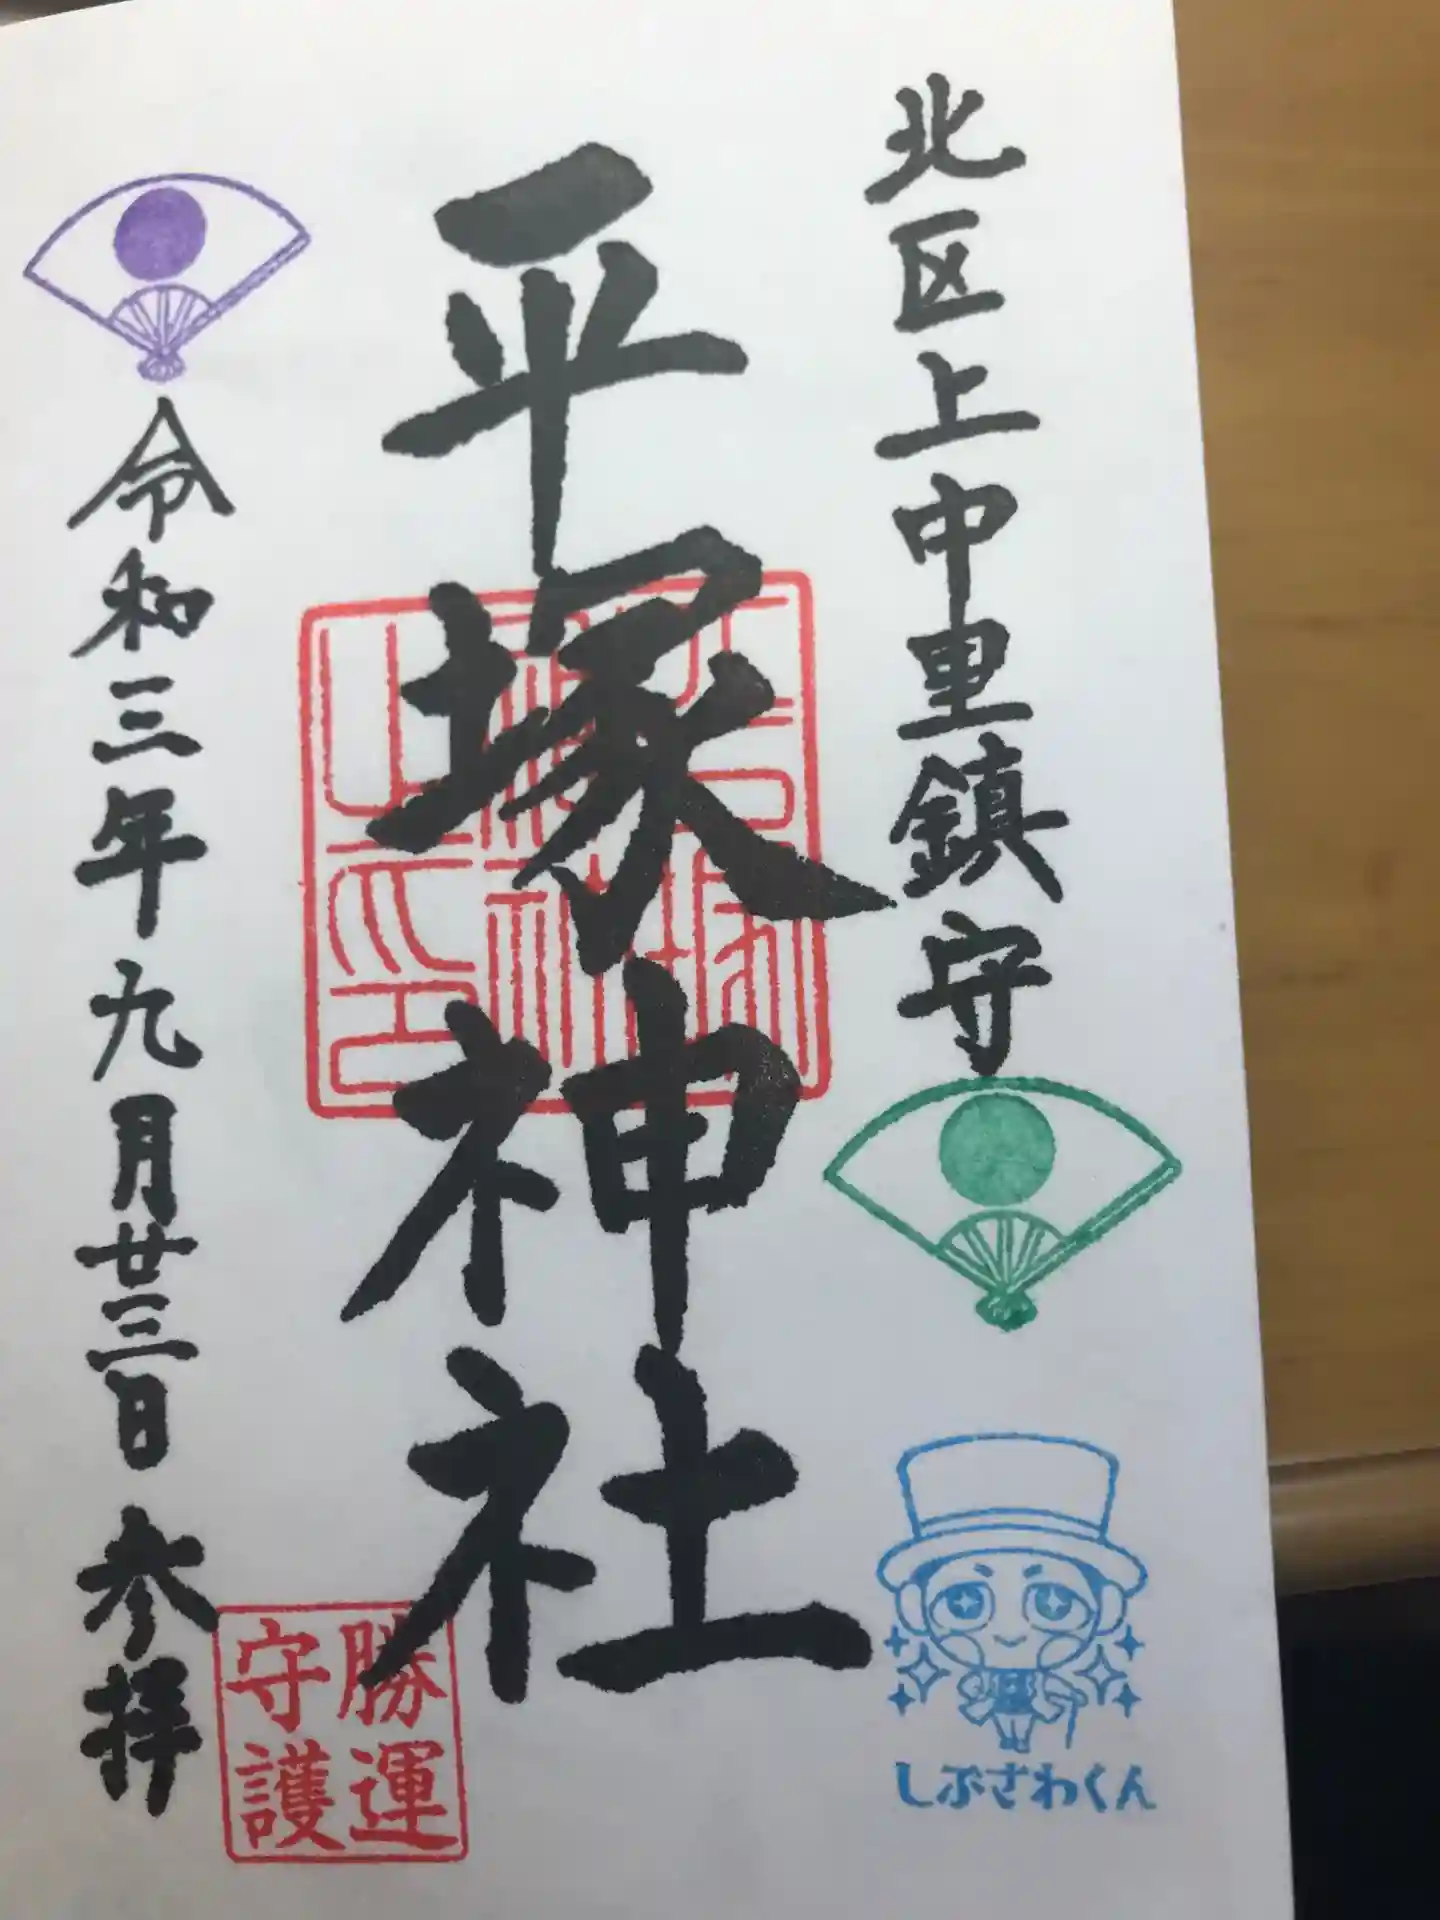 北区上中里鎮守
しぶざわくん
平塚神社
平塚神社之印
勝運守護
令和三年九月廿三日 参拝